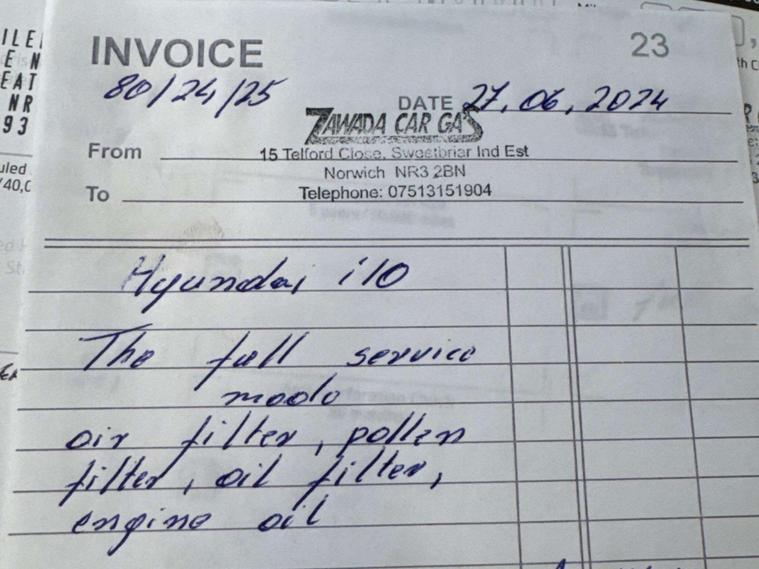 INVOICE 23
80/24/25 DATE 27.06.2024
ZAWADA CAR GAS
From 15 Telford Close, Sweetbriar Ind Est
Norwich NR3 2BN
To Telephone: 07513151904
Hyundai i10
The full service
made
air filter, pollen
filter, oil filter,
engine oil